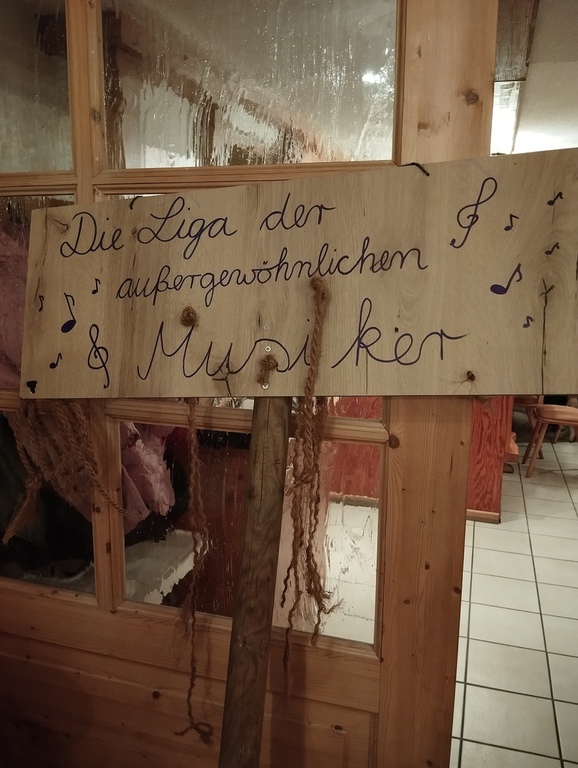 Die Liga der
außergewöhnlichen
Musiker